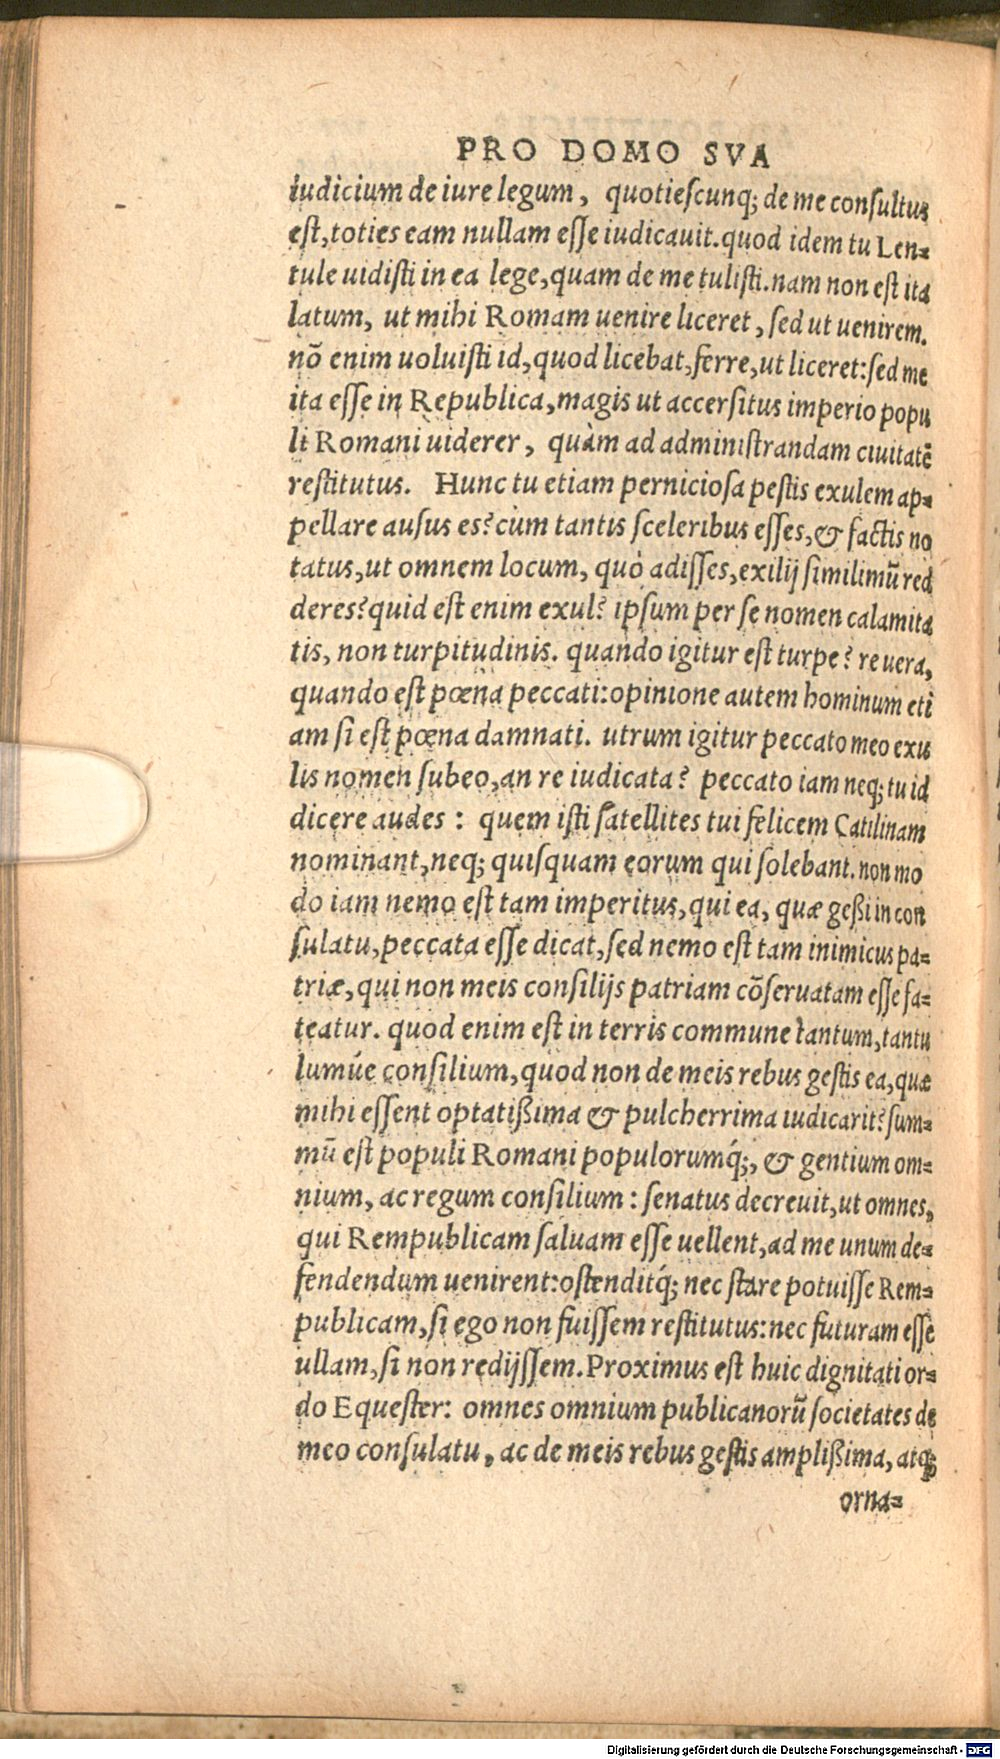 PRO DOMO SVA
iudicium de iure legum, quotiescunq; de me consultus
est, toties eam nullam esse iudicauit. quod idem tu Len-
tule uidisti in ea lege, quam de me tulisti. nam non est ita
latum, ut mihi Romam uenire liceret, sed ut uenirem.
nō enim uoluisti id, quod licebat, ferre, ut liceret: sed me
ita esse in Republica, magis ut accersitus imperio popu
li Romani uiderer, quàm ad administrandam ciuitatē
restitutus. Hunc tu etiam perniciosa pestis exulem ap-
pellare ausus es? cùm tantis sceleribus esses, & factis no
tatus, ut omnem locum, quò adisses, exilij similimū red
deres? quid est enim exul? ipsum per se nomen calamita
tis, non turpitudinis. quando igitur est turpe? re uera,
quando est pœna peccati: opinione autem hominum eti
am si est pœna damnati. utrum igitur peccato meo exu
lis nomen subeo, an re iudicata? peccato iam neq; tu id
dicere audes : quem isti satellites tui felicem Catilinam
nominant, neq; quisquam eorum qui solebant. non mo
do iam nemo est tam imperitus, qui ea, quæ geßi in con
sulatu, peccata esse dicat, sed nemo est tam inimicus pa-
triæ, qui non meis consilijs patriam cōseruatam esse fa-
teatur. quod enim est in terris commune tantum, tantu
lumúe consilium, quod non de meis rebus gestis ea, quæ
mihi essent optatißima & pulcherrima iudicarit? sum-
mū est populi Romani populorumq́;, & gentium om-
nium, ac regum consilium : senatus decreuit, ut omnes,
qui Rempublicam saluam esse uellent, ad me unum de-
fendendum uenirent: ostenditq́; nec stare potuisse Rem-
publicam, si ego non fuissem restitutus: nec futuram esse
ullam, si non redijssem. Proximus est huic dignitati or-
do Equester: omnes omnium publicanorū societates de
meo consulatu, ac de meis rebus gestis amplißima, atq;
orna-
Digitalisierung gefördert durch die Deutsche Forschungsgemeinschaft - DFG